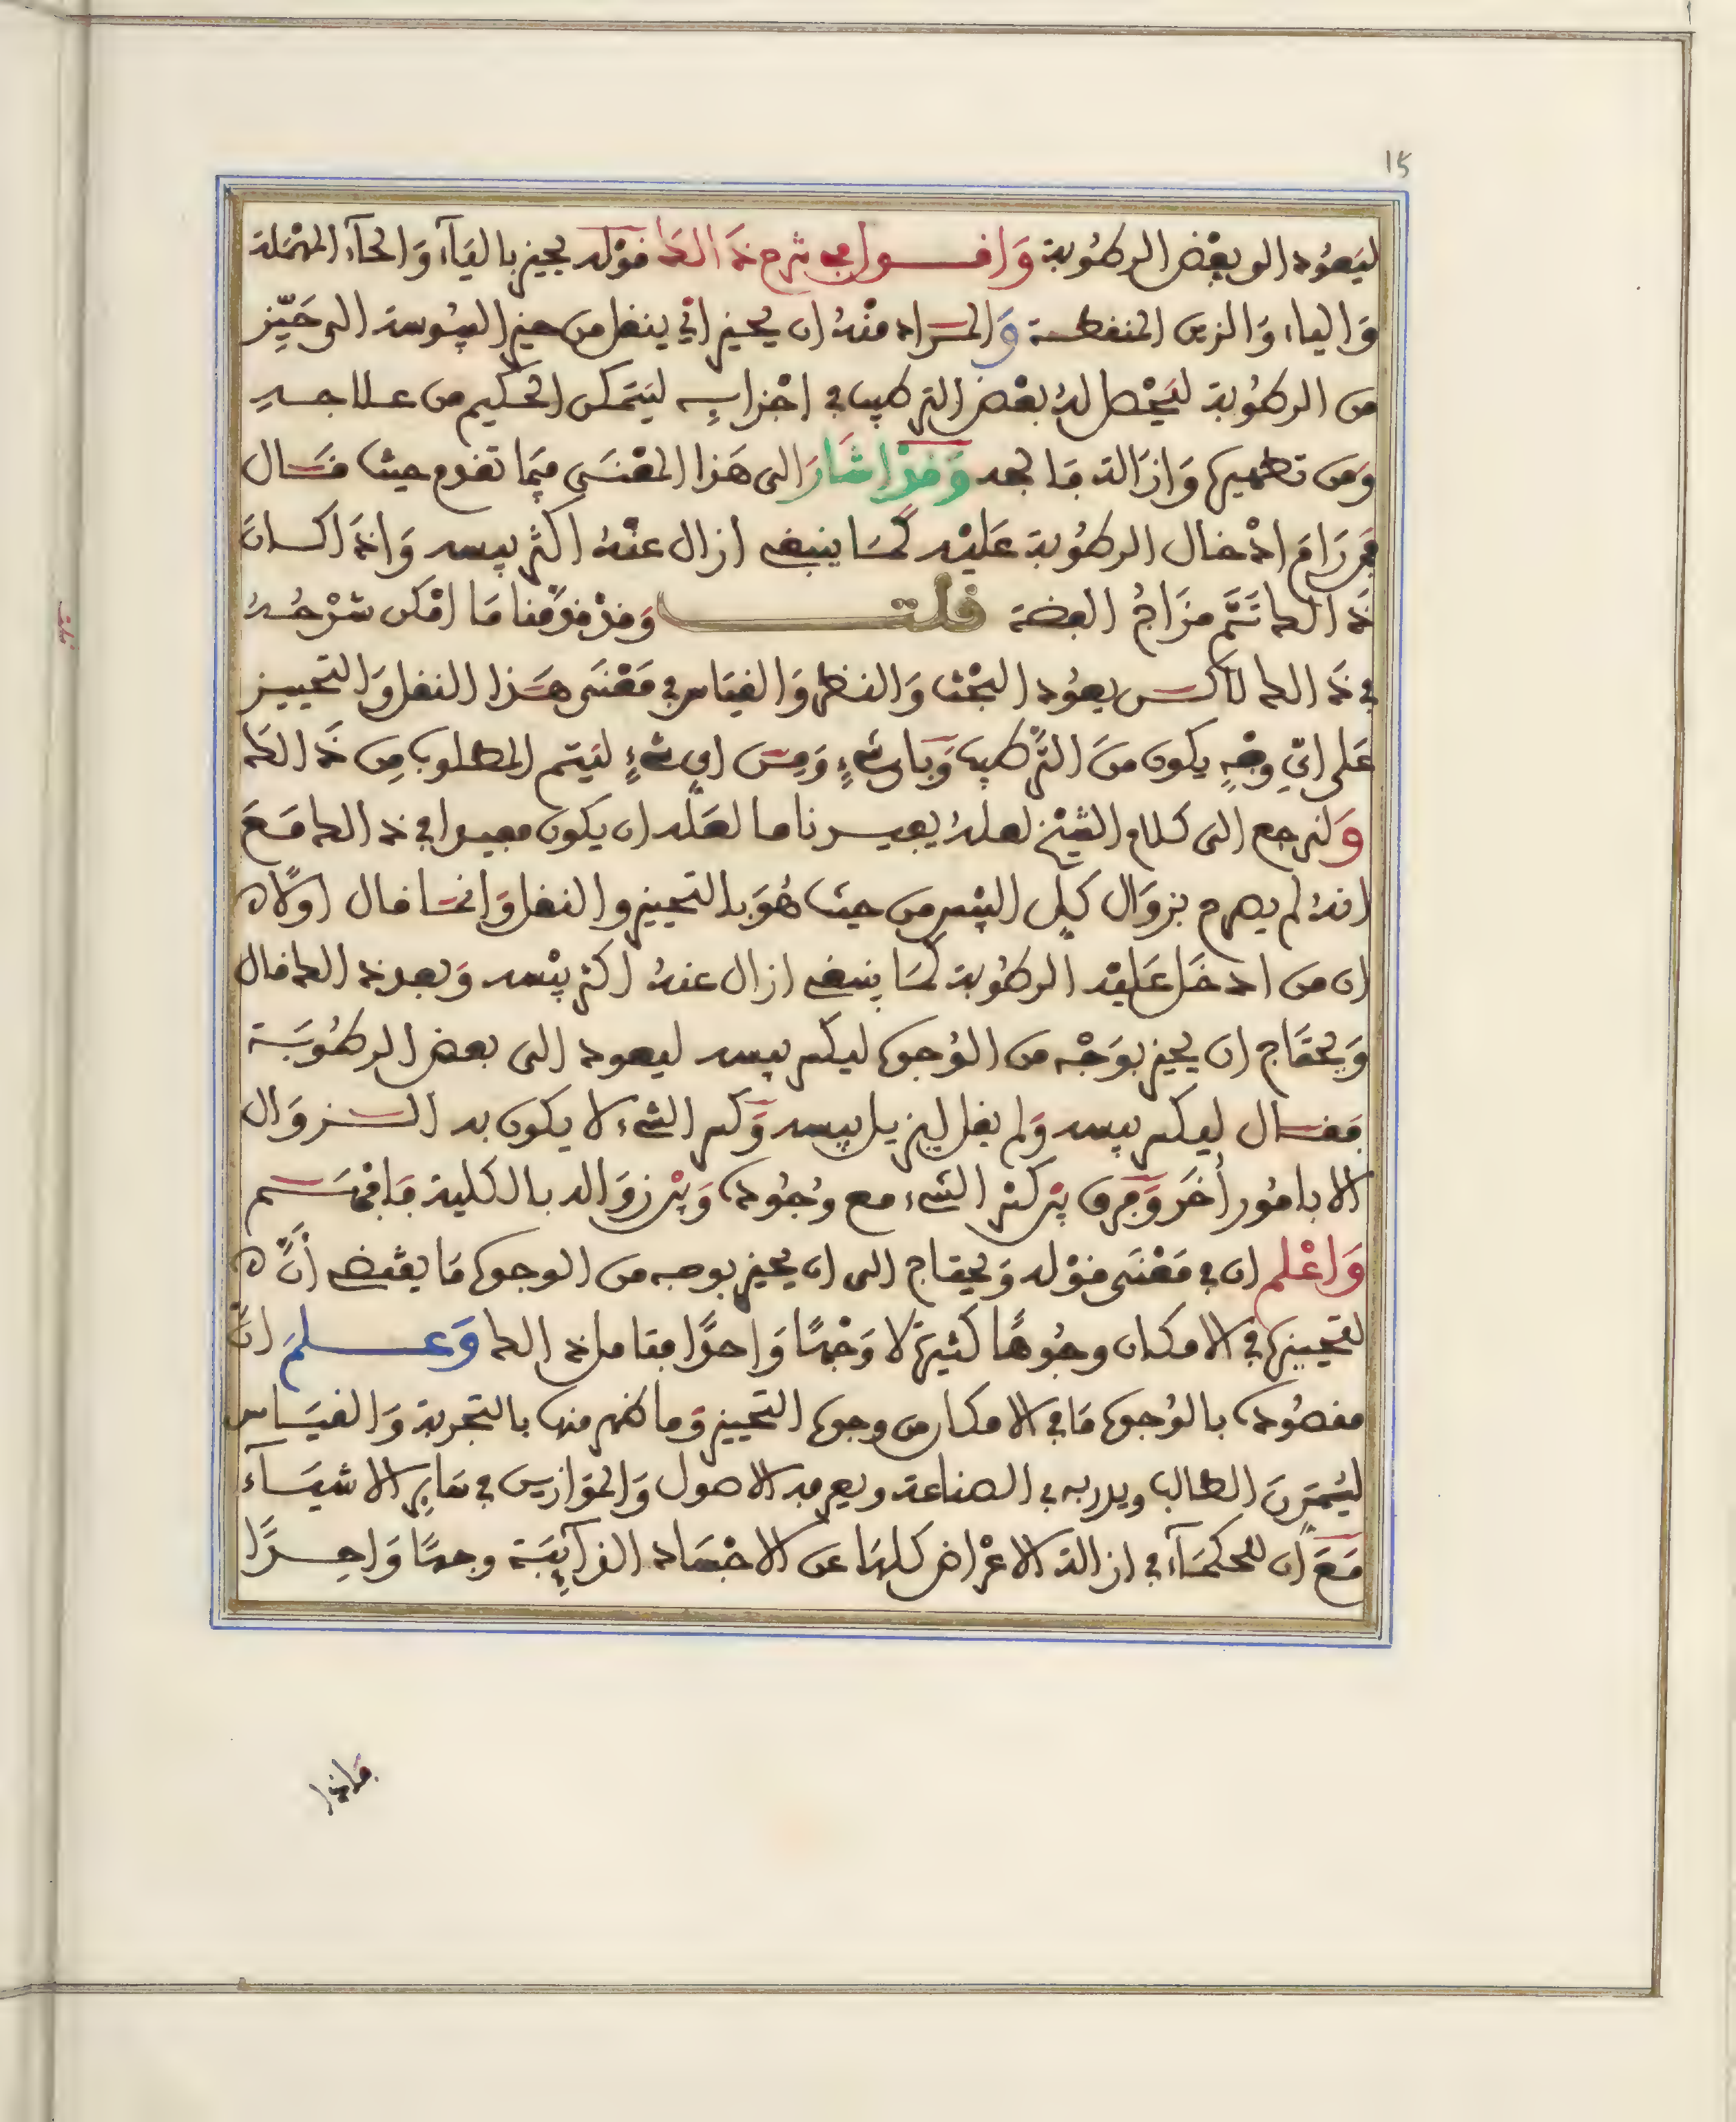 15
ليَعُود الى بعْض الرطُوبة وَاقـول في شرح ذَالكَ قوْله يحيز باليَآء وَالحآء المهْمَلة
وَالياء وَالزين المنقطـة وَالمـراد منْهُ ان يحيز ايْ ينقل من حيز اليبُوسة الى حَيّز
من الرطُوبة ليَحْصل لهُ بعْض التركيب في اجْزايـه ليَتمكن الحكيم من عـلاجـهِ
وَمن تطهيره وَازَالة مَا بعد وَقدْ اشَارَ الى هَذا المعْنـى فيمَا تقدم حيث قـال
فمن رَامَ ادْخال الرطُوبة عَليْه كمَـا ينبغي ازال عنْهُ اكثر يبسه وَاذَا كـانَ
ذَالك تَمَّ مزَاجُ الفضة قلـت وَقدْ قدّمْنا مَا امْكن شرْحُـهُ
في ذَالك لاكـن يعوُد البحْث وَالنظر وَالقيَاس في مَعْنَى هَـذا النقل وَالتحييـز
عَلى ايّ وجْهٍ يكون منَ التَّركيب وَباي شيْءٍ وَمِـن اي شيْءٍ ليَتم المطلوب مِن ذَالكَ
وَلنرجع الى كلام الشيْخ لعلهُ يفيـدنا ما لعَلّه ان يكون مفيـدا في ذالك مَـعَ
انهُ لم يصرح بزوَال كل اليبْس من حيث هُوَ بالتحييز والنقل وَانمـا قال اولًا
ان من ادخَل عَليْه الرطُوبة كمَا ينبغي ازال عنهُ اكثر يبْسه وَبعد ذالك قال
وَيحتَاج ان يحيز بوَجْه من الوُجوه ليكسر يبسه ليعود الى بعض الرطُوبَـة
فقـال ليكسر يبسه وَلم يقل ليزيل يبسه وَكسر الشيء لا يكون به الـزوَال
الا بامُور أخَر وَفرق بيْن كسْر الشيء مع وُجُوده وَبيْن زوَاله بالكلية فَافهَـم
وَاعْلم ان في مَعْنَى قوْله وَيحتاج الى ان يحيز بوجه من الوجوه مَا يقْتضي أنَّ
لتحييزه في الامكان وجُوهًا كثيرة لا وَجْهًا وَاحدًا فتامل ذالك وَعـلمَ انَّ
مقصُوده بالوُجوه مَا في الامكان من وجوه التحييز وَما ظهر منها بالتجربة وَالقيَـاس
ليُمَرن الطالب ويدربه في الصناعة ويعرفه الاصول وَالموَازيـن في سَايِر الاشيَـآء
مَـعَ ان للحكمَآء في ازالة الاعْراض كلهَا عن الاجْسَاد الذآيِبَـة وجهًا وَاحِـدًا
فاذا